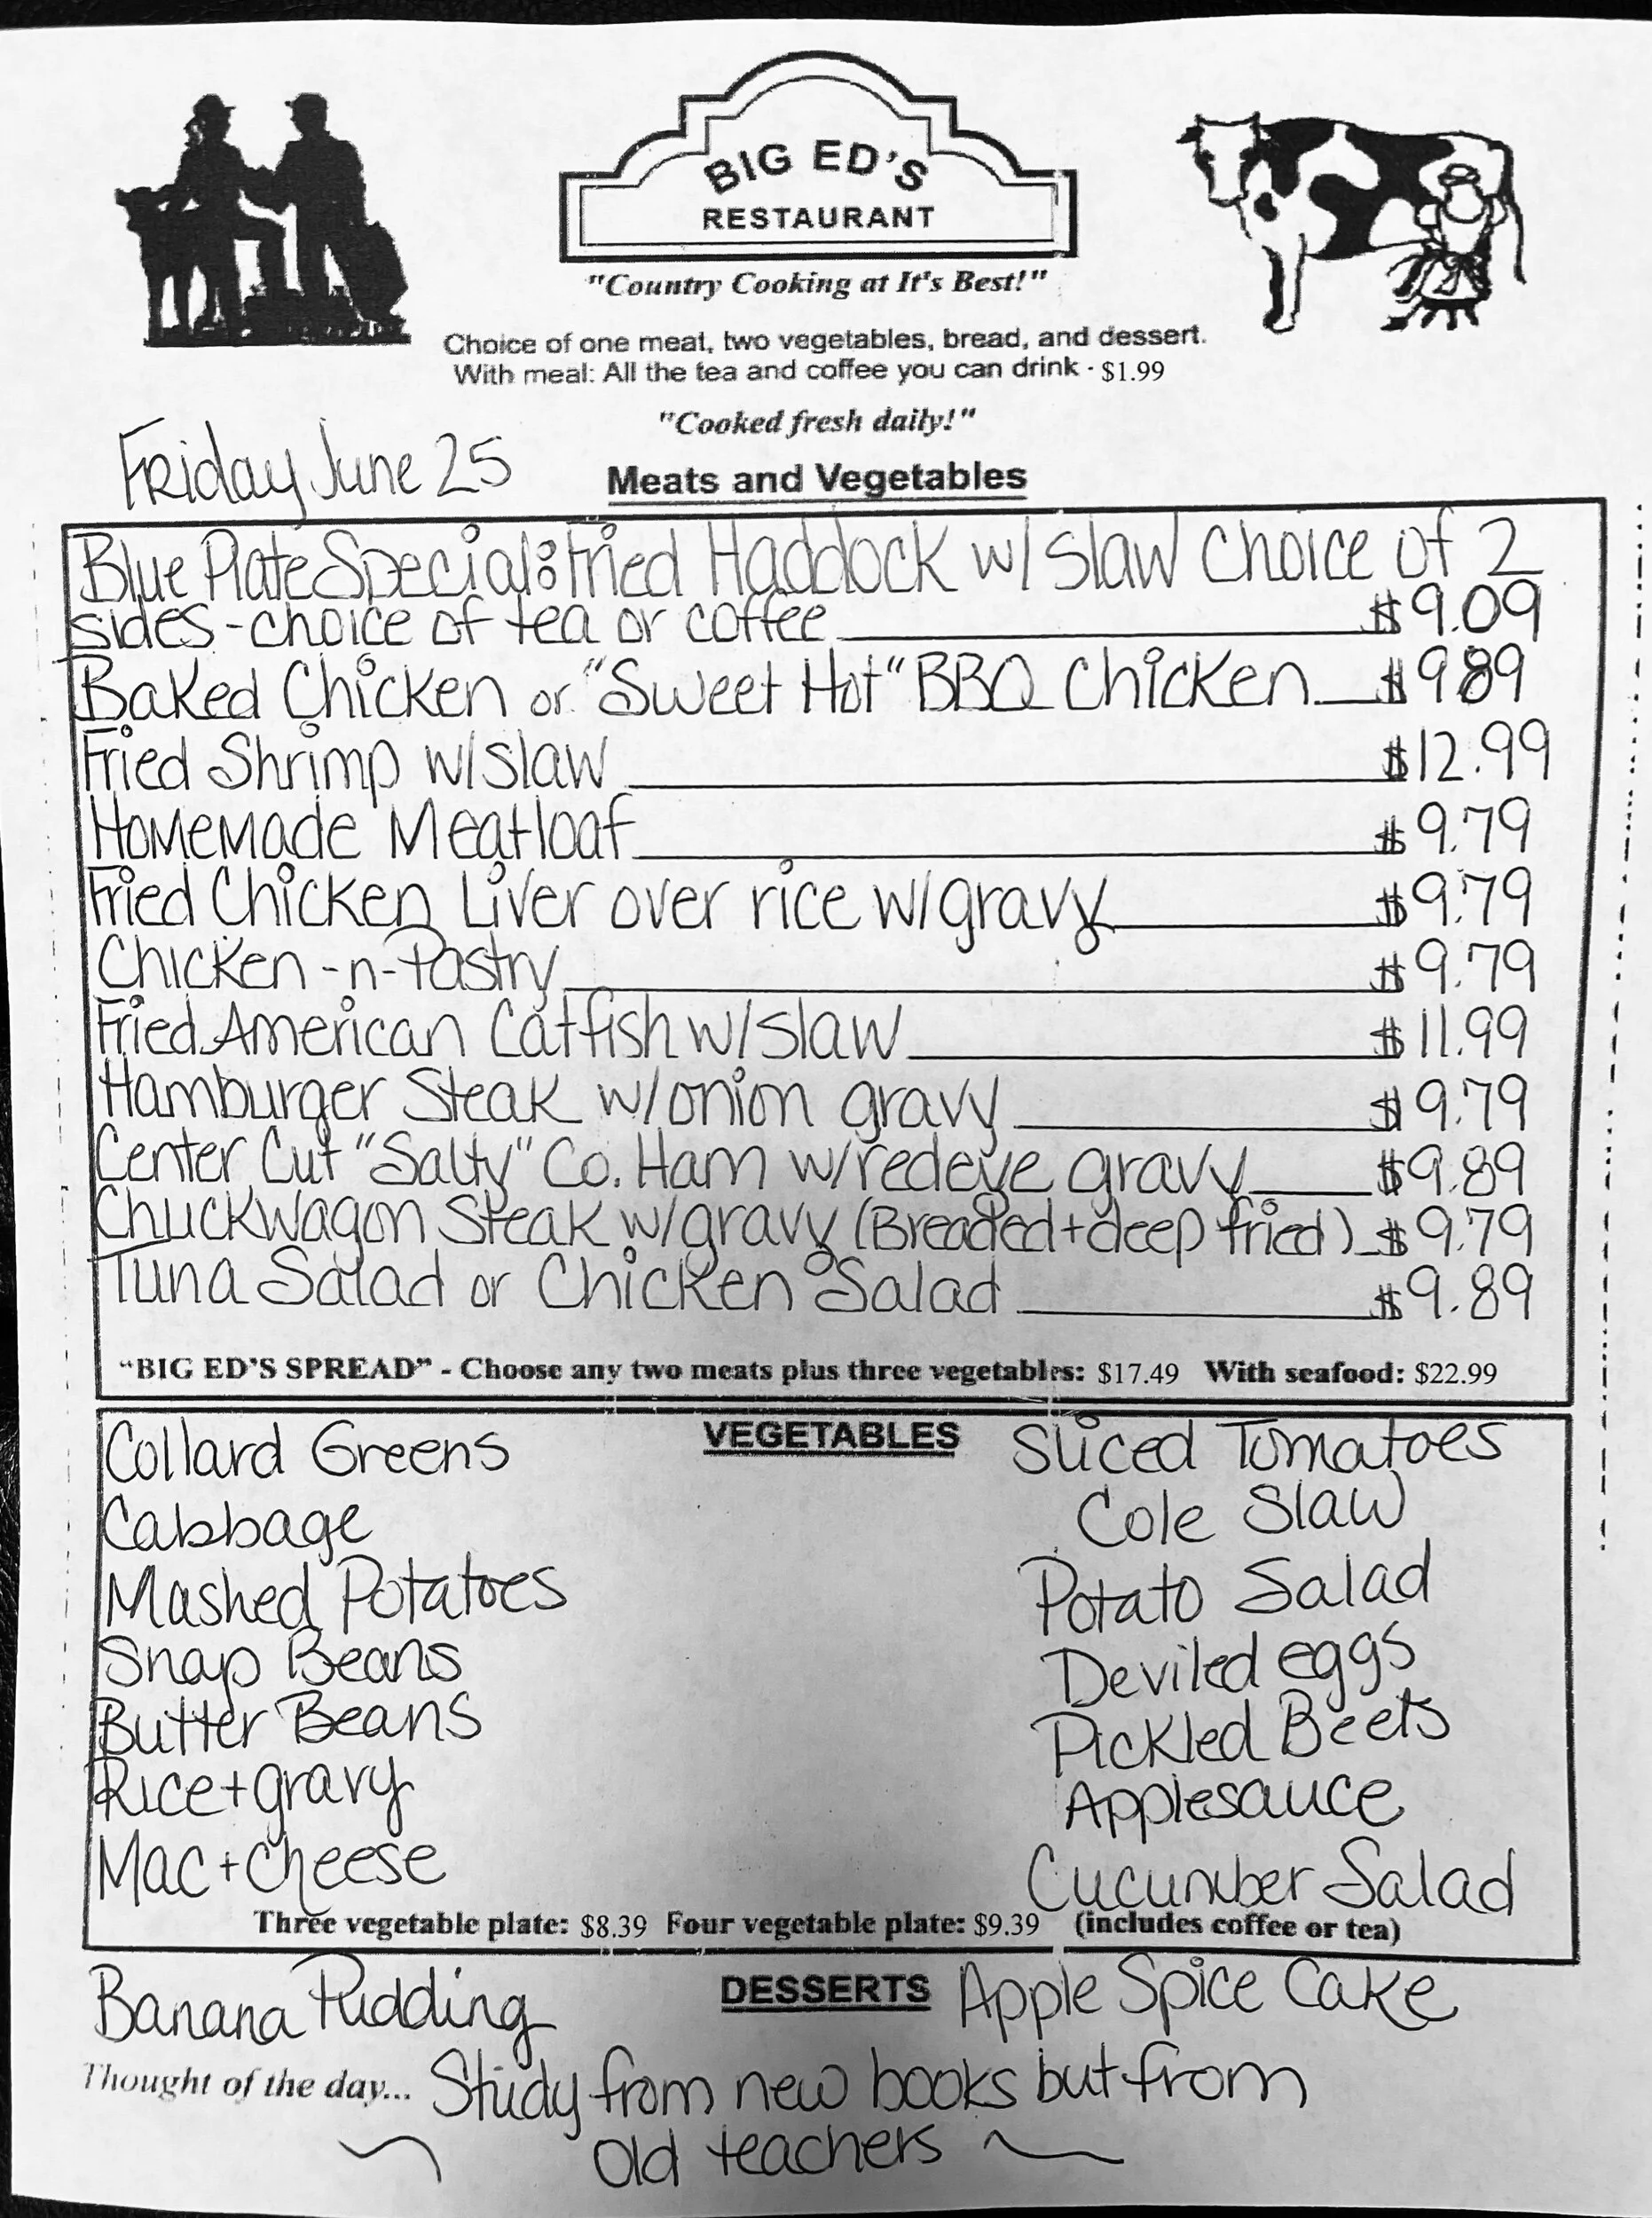 BIG ED'S
RESTAURANT
"Country Cooking at It's Best!"
Choice of one meat, two vegetables, bread, and dessert.
With meal: All the tea and coffee you can drink - $1.99
"Cooked fresh daily!"
Friday June 25
Meats and Vegetables
Blue Plate Special: Fried Haddock w/ slaw choice of 2
sides - choice of tea or coffee $9.09
Baked Chicken or "Sweet Hot" BBQ Chicken $9.89
Fried Shrimp w/slaw $12.99
Homemade Meatloaf $9.79
Fried Chicken Liver over rice w/gravy $9.79
Chicken-n-Pastry $9.79
Fried American Catfish w/slaw $11.99
Hamburger Steak w/onion gravy $9.79
Center Cut "Salty" Co. Ham w/redeye gravy $9.89
Chuckwagon Steak w/gravy (Breaded + deep fried) $9.79
Tuna Salad or Chicken Salad $9.89
"BIG ED'S SPREAD" - Choose any two meats plus three vegetables: $17.49 With seafood: $22.99
VEGETABLES
Collard Greens
Cabbage
Mashed Potatoes
Snap Beans
Butter Beans
Rice + gravy
Mac + cheese
Sliced Tomatoes
Cole Slaw
Potato Salad
Deviled eggs
Pickled Beets
Applesauce
Cucumber Salad
Three vegetable plate: $8.39 Four vegetable plate: $9.39 (includes coffee or tea)
DESSERTS
Banana Pudding
Apple Spice Cake
Thought of the day... Study from new books but from
old teachers